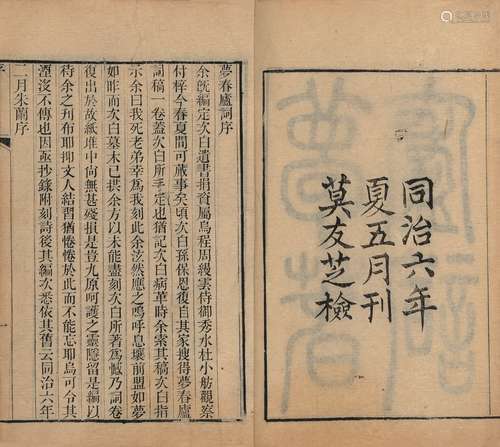 同治六年
夏五月刊
莫友芝檢
夢春廬詞序
余旣編定次白遺書捐資屬烏程周縵雲侍御秀水杜小舫觀察
付梓今春夏間可蕆事矣頃次白孫保恩復自其家搜得夢春廬
詞稿一卷蓋次白所手定也猶記次白病革時余索其稿次白指
示余曰我死老弟幸爲我刻此余泫然應之嗚呼息壤前盟如夢
如昨而次白墓木已拱余方以未能盡刻次白所著爲憾乃詞卷
復出於故紙堆中尙無甚殘損是豈九原呵護之靈隱留是編以
待余之刊布耶抑文人結習猶惓惓於此而不能忘耶烏可令其
湮沒不傳也因亟抄錄附刻詩後其編次悉依其舊云同治六年
二月朱蘭序